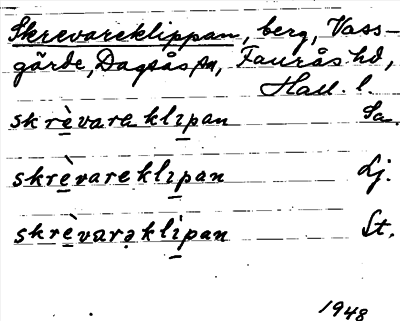 Skrevareklippan, berg, Vass-
gärde, Dagsås sn, Faurås hd,
Hall. l.
skrèvarəklipan Sa.
skrèvareklipan Lj.
skrèvarəklipan St.
1948